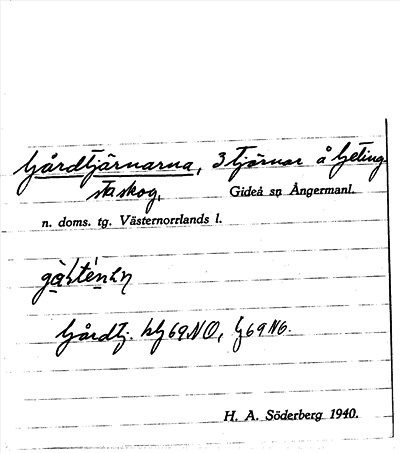 Gårdtjärnarna, 3 tjärnar å Geting
staskog,
Gideå sn Ångermanl.
n. doms. tg. Västernorrlands l.
Gårdtj. 69NO, 69NO.
H. A. Söderberg 1940.